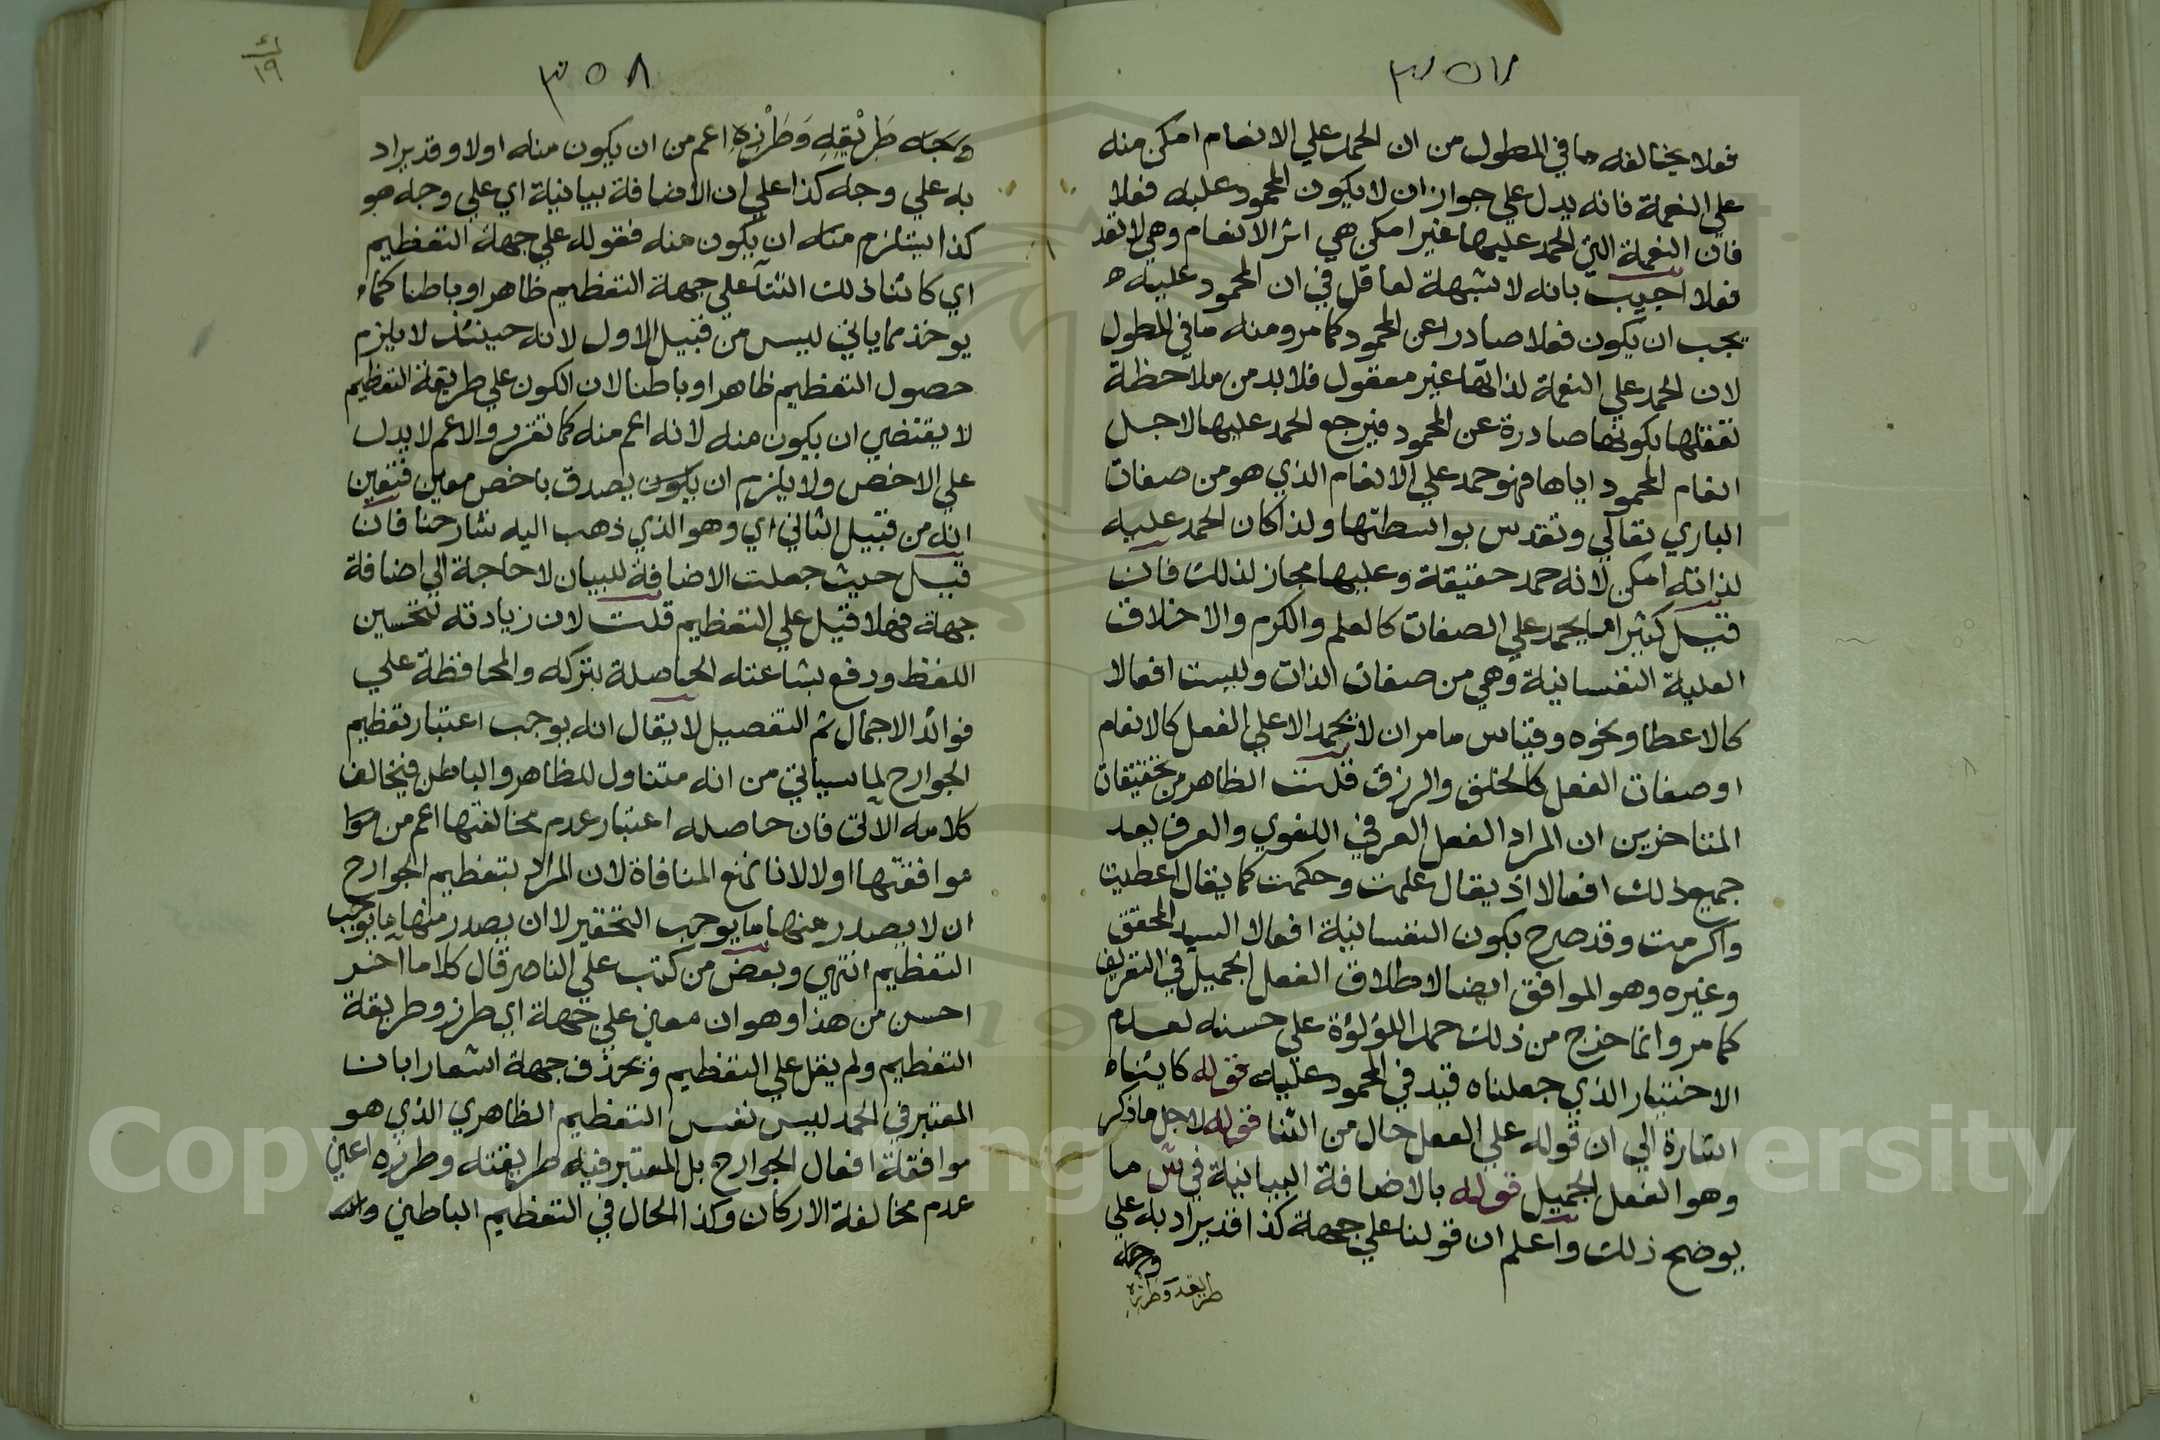 ٣٥٧
فعلا يخالفه ما في المطول من ان الحمد علي الانعام امكن منه
علي النعمة فانه يدل علي جواز ان لا يكون المحمود عليه فعلا
فان النعمة التي الحمد عليها غير امكن هي اثر الانعام وهي لا تعد
فعلا اجيب بانه لا شبهة لعاقل في ان المحمود عليه
يجب ان يكون فعلا صادرا عن المحمود كما مر ومنه ما في المطول
لان الحمد علي النعمة لذاتها غير معقول فلا بد من ملاحظة
تعقلها بكونها صادرة عن المحمود فيرجع الحمد عليها لاجل
انعام المحمود اياها فهو حمد علي الانعام الذي هو من صفات
الباري تعالي وتقدس بواسطتها ولذا كان الحمد عليه
لذاته امكن لانه حمد حقيقة وعليها مجاز لذلك فان
قيل كثيرا ما يحمد علي الصفات كالعلم والكرم والاخلاق
العلية النفسانية وهي من صفات الذات وليست افعالا
كالاعطا ونحوه وقياس ما مر ان لا يحمد الا علي الفعل كالانعام
او صفات الفعل كالخلق والرزق قلت الظاهر من تحقيقات
المتاخرين ان المراد الفعل العرفي اللغوي والعرف يعد
جميع ذلك افعالا اذ يقال علمت وحكمت كما يقال اعطيت
واكرمت وقد صرح بكون النفسانية افعالا السيد المحقق
وغيره وهو الموافق ايضا لاطلاق الفعل الجميل في التعريف
كما مر وانما خرج من ذلك حمد اللؤلؤة علي حسنه لعدم
الاختيار الذي جعلناه قيد في المحمود عليه قوله كاثناه
اشارة الي ان قوله علي الفعل حال من الثنا قوله لاجل ما ذكر
وهو الفعل الجميل قوله بالاضافة البيانية في ش ما
يوضح ذلك واعلم ان قولنا علي جهة كذا قد يراد به علي
وجه
طريقه وطرزه
٣٥٨
ك
١٩
وجه طَرِيْقِهِ وَطَرْزِهِ اعم من ان يكون منه اولا وقد يراد
به علي وجه كذا علي ان الاضافة بيانية اي علي وجه هو
كذا يستلزم منه ان يكون منه فقوله علي جهة التعظيم
اي كائنا ذلك الثنآ علي جهة التعظيم ظاهرا وباطنا كما
يوخذ مما ياتي ليس من قبيل الاول لانه حينئذ لا يلزم
حصول التعظيم ظاهرا وباطنا لان الكون علي طريقة التعظيم
لا يقتضي ان يكون منه لانه اعم منه كما تقرر والاعم لا يدل
علي الاخص ولا يلزم ان يكون يصدق باخص معين فتعين
انه من قبيل الثاني اي وهو الذي ذهب اليه شارحنا فان
قيل حيث جعلت الاضافة للبيان لا حاجة الي اضافة
جهة فهلا قيل علي التعظيم قلت لان زيادته لتحسين
اللفظ ودفع بشاعته الحاصلة بتركه والمحافظة علي
فوائد الاجمال ثم التفصيل لا يقال انه يوجب اعتبار تعظيم
الجوارح لما سياتي من انه متناول للظاهر والباطن فيخالف
كلامه الاتي فان حاصله اعتبار عدم مخالفتها اعم من سوا
موافقتها اولا لانا نمنع المنافاة لان المراد بتعظيم الجوارح
ان لا يصدر منها ما يوجب التحقير لا ان يصدر منها ما يوجب
التعظيم انتهي وبعض من كتب علي الناصر قال كلاما اخر
احسن من هذا وهو ان معني علي جهة اي طرز وطريقة
التعظيم ولم يقل علي التعظيم وبحذف جهة اشعارا بان
المعتبر في الحمد ليس نفس التعظيم الظاهري الذي هو
موافقة افعال الجوارح بل المعتبر فيه طريقته وطرزه اعني
عدم مخالفة الاركان وكذا الحال في التعظيم الباطني والله
Copyright © King Saud University